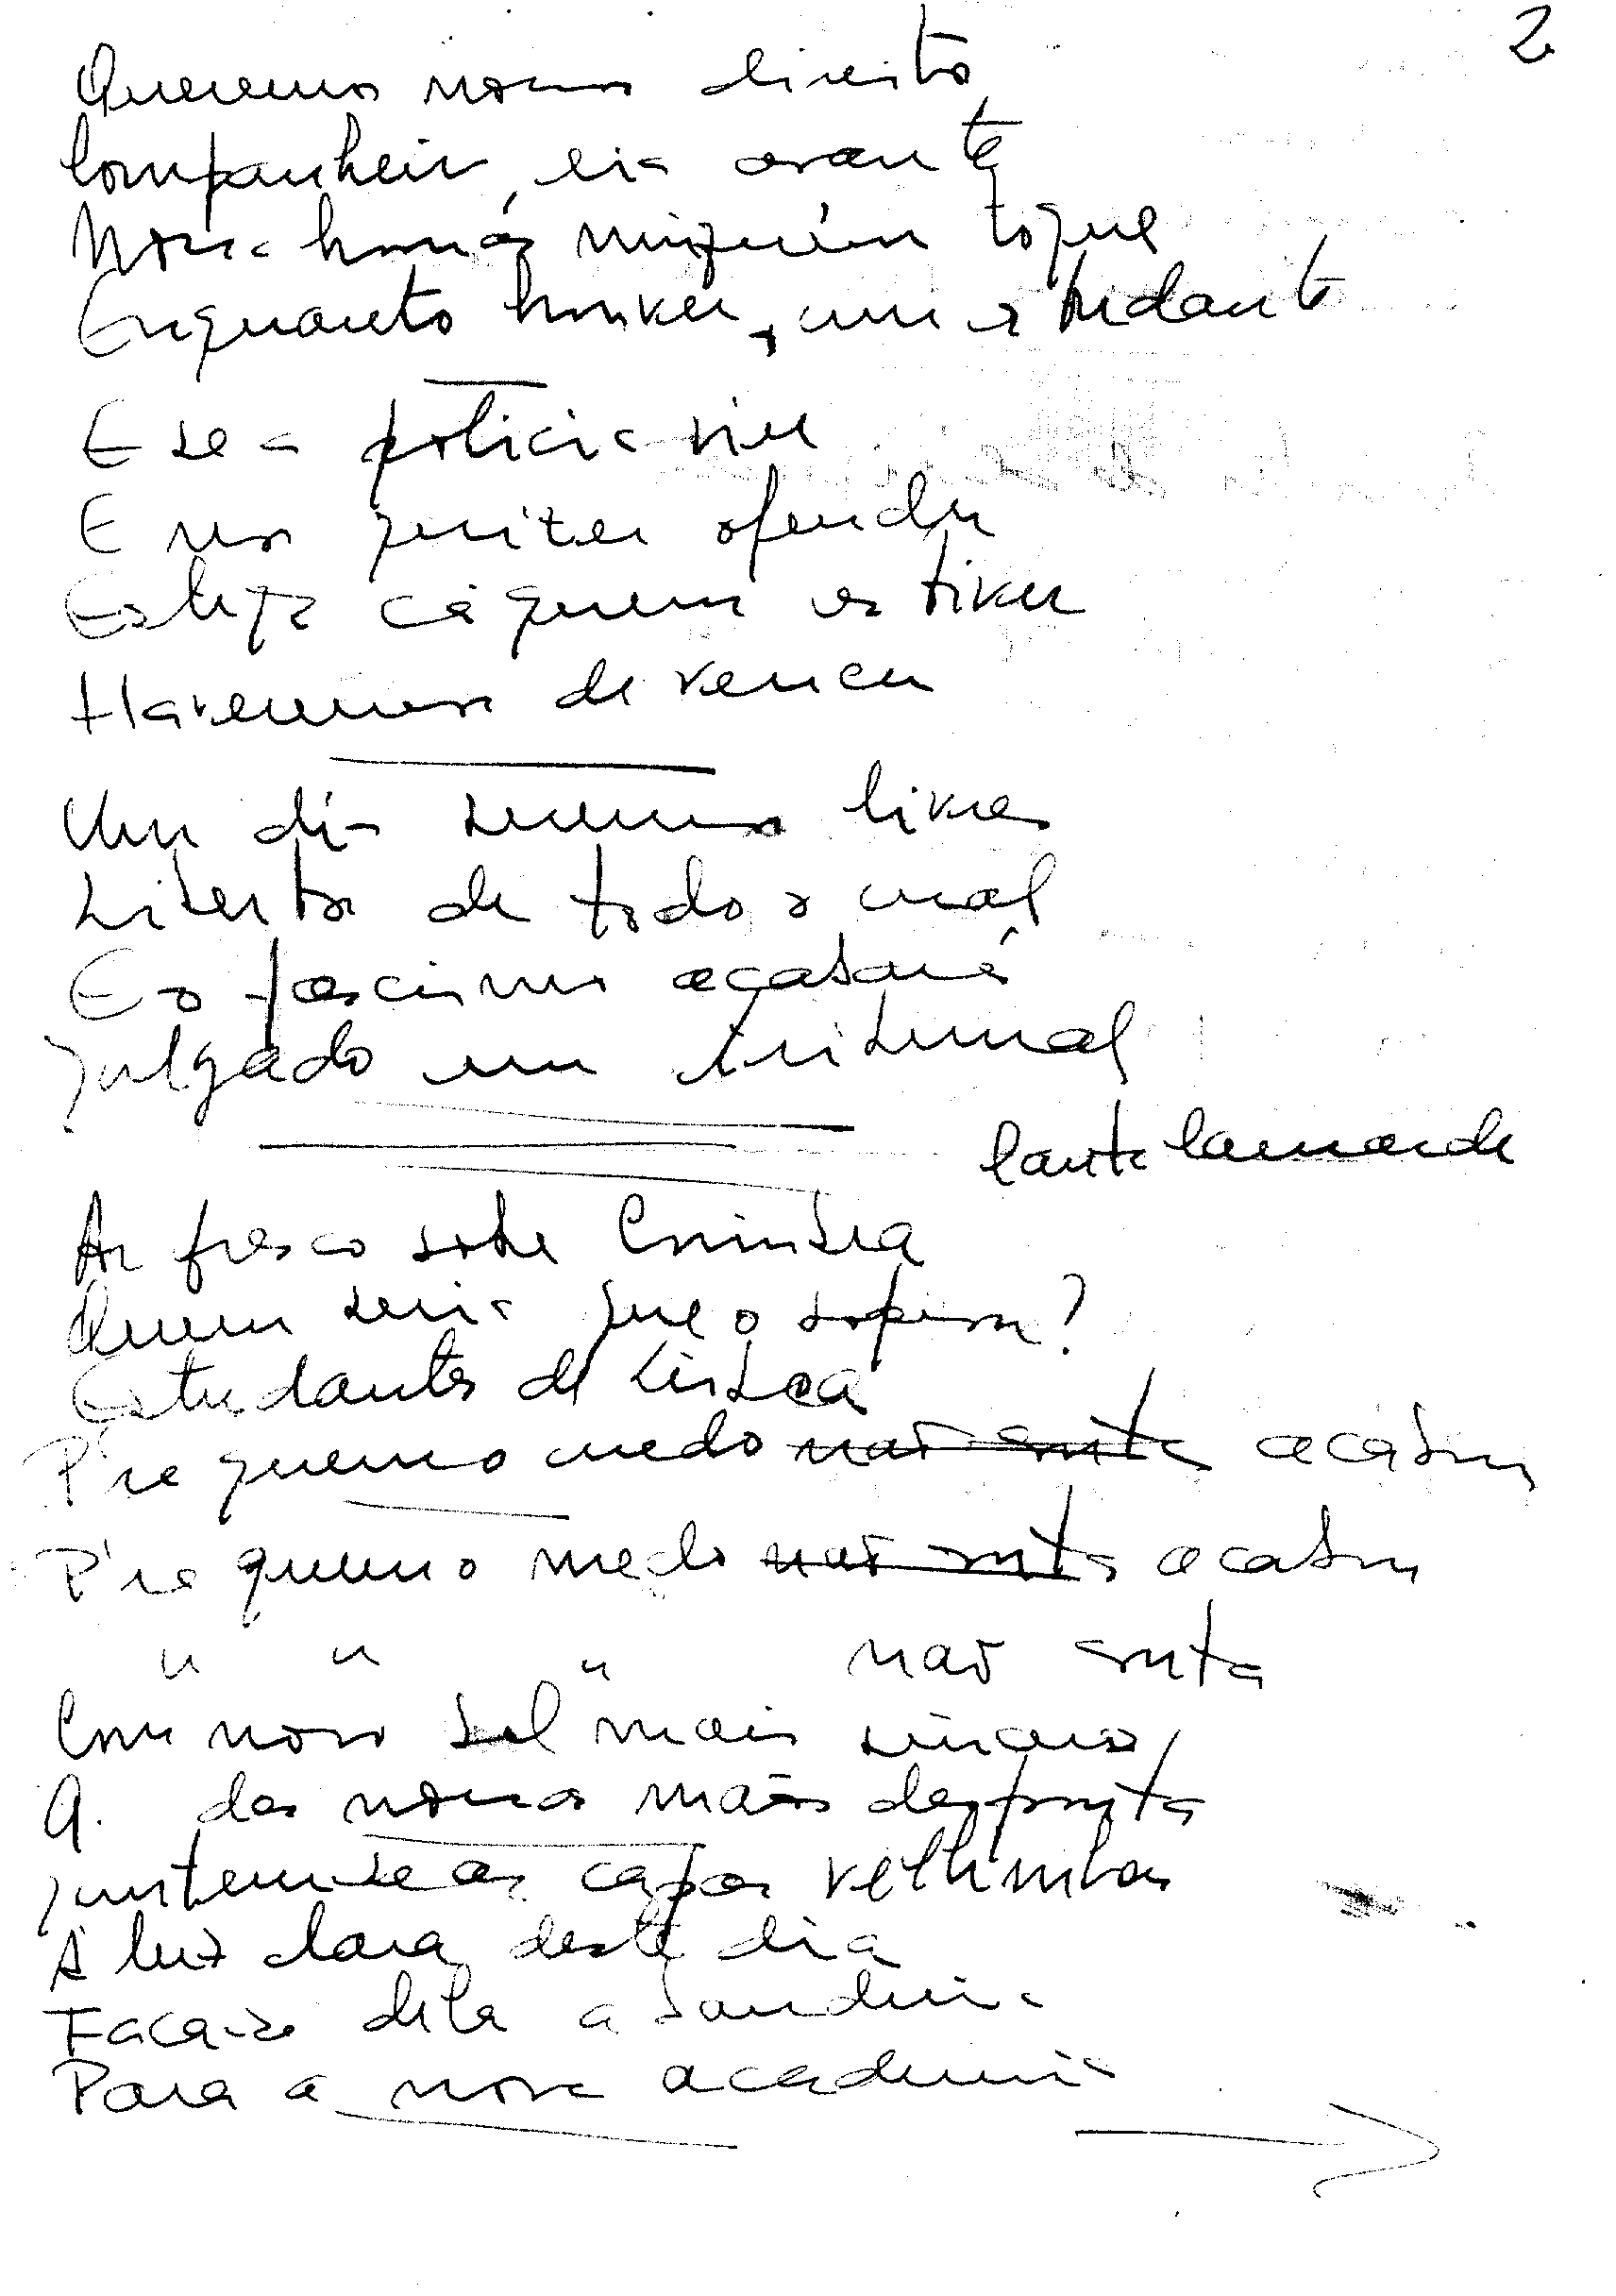 2
Queremos nossos direitos
Companheiros, eia avante
Nossa honra ninguém toque
Enquanto houver, um estudante
E se a policia vier
E nos quizer ofender
Esteja cá quem estiver
Havemos de vencer
Um dia seremos livres
Libertos de todo o mal
E o fascismo acabará
Julgado em tribunal
Ar fresco sobre Coimbra
Quem seria que o soprou?
Estudantes de Lisboa
P'ra quem o medo não conta acabou
P'ra quem o medo não conta acabou
" " " não conta
Com novo sol mais sincero
A. das nossas mãos desponta
Juntem-se as capas velhinhas
À luz clara deste dia
Faça-se dela a bandeira
Para a nova academia